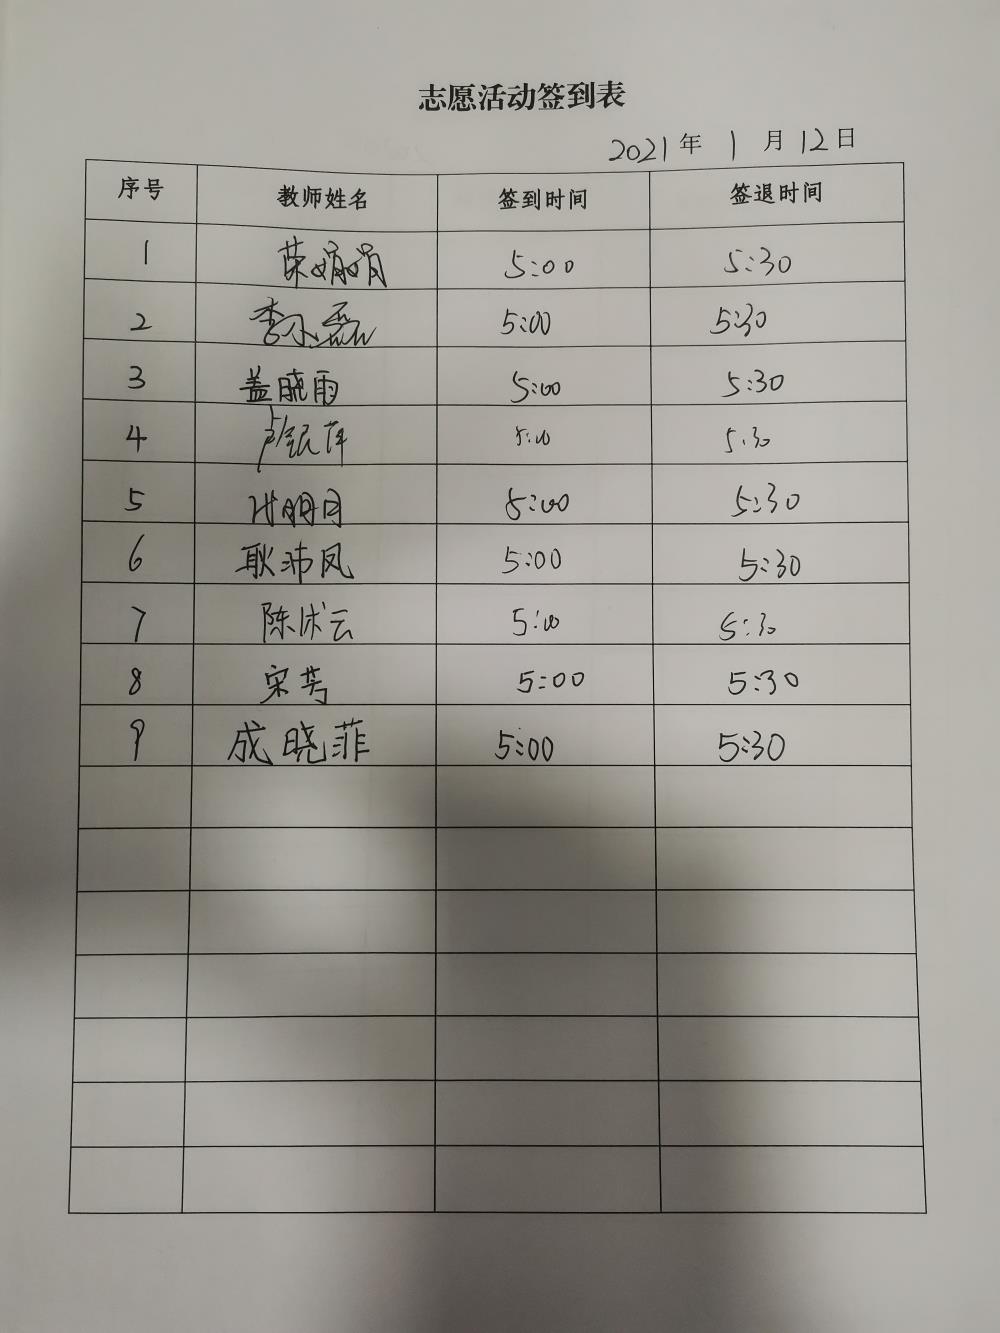 志愿活动签到表
2021年 1月12日
序号 教师姓名 签到时间 签退时间
1 荣娟娟 5:00 5:30
2 李小磊 5:00 5:30
3 盖晓雨 5:00 5:30
4 卢银萍 5:00 5:30
5 代明月 5:00 5:30
6 耿沛凤 5:00 5:30
7 陈术云 5:00 5:30
8 宋芳 5:00 5:30
9 成晓菲 5:00 5:30